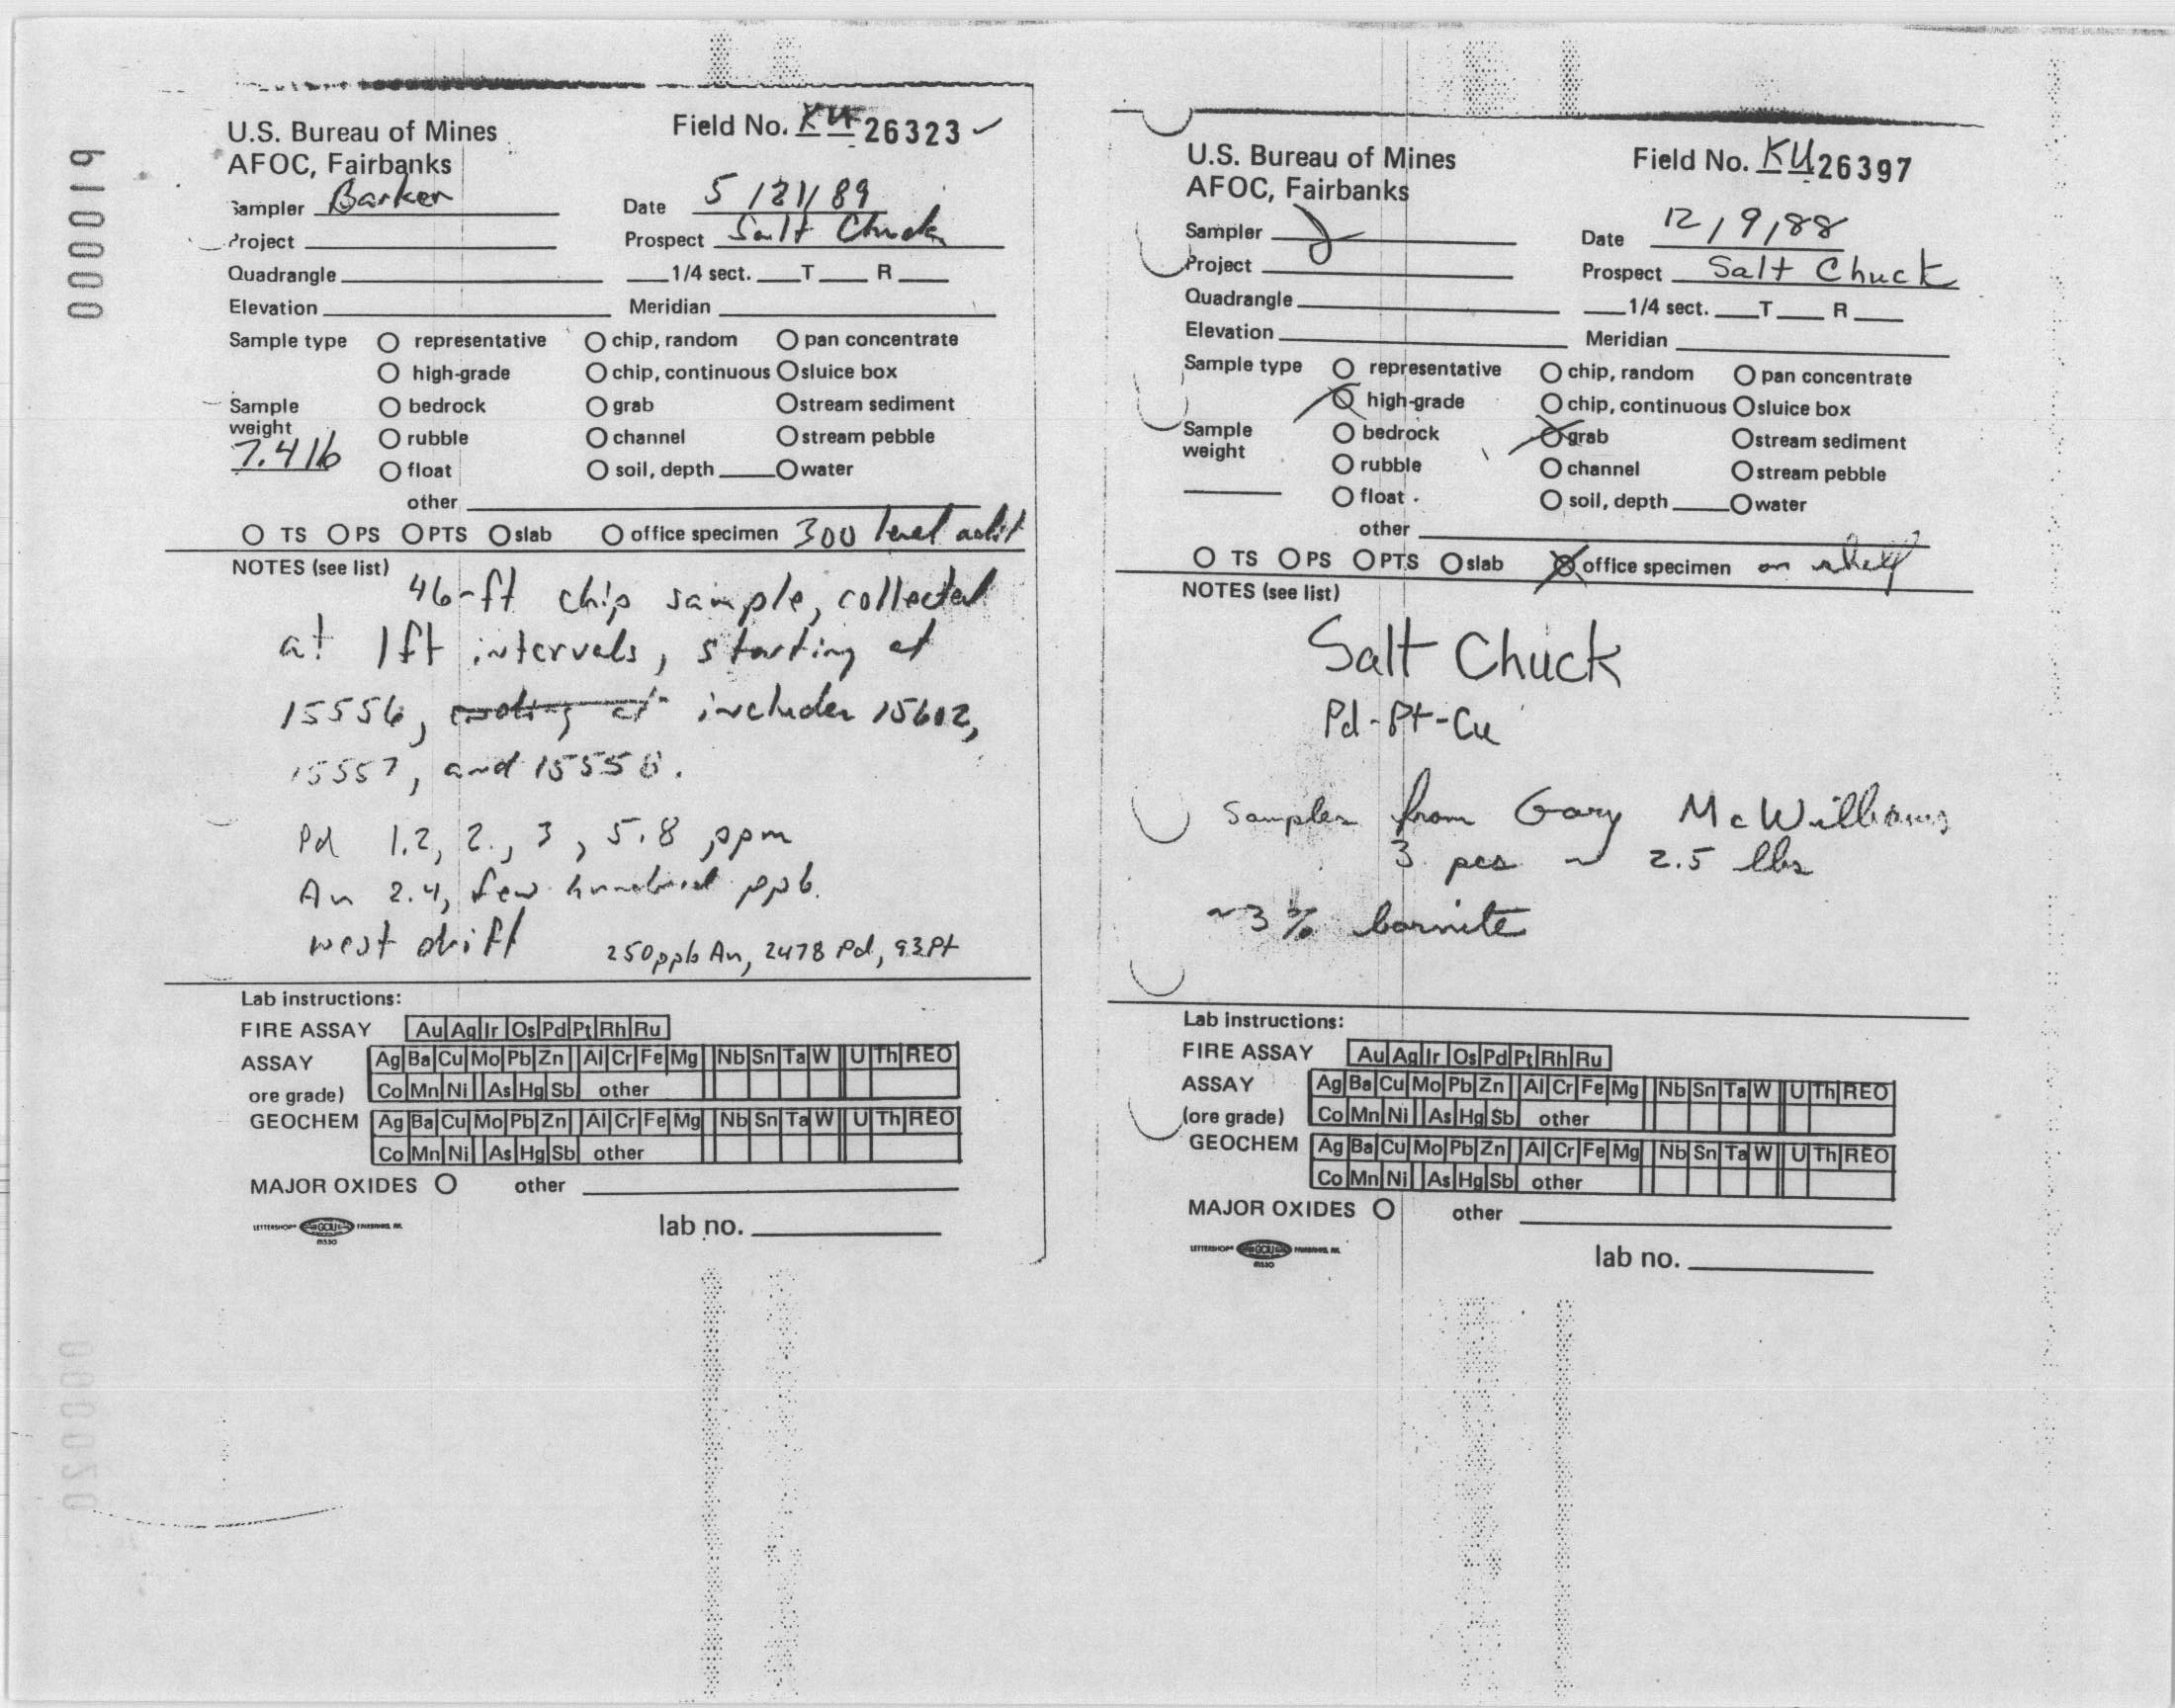 000019
U.S. Bureau of Mines
Field No. KU 26323 ✓
AFOC, Fairbanks
Sampler Barker
Date 5/21/89
Project
Prospect Salt Chuck
Quadrangle 1/4 sect. T R
Elevation Meridian
Sample type representative chip, random pan concentrate
high-grade chip, continuous sluice box
Sample bedrock grab stream sediment
weight rubble channel stream pebble
7.4 lb float soil, depth water
other
TS PS PTS slab office specimen 300 level adit
NOTES (see list)
46-ft chip sample, collected
at 1ft intervals, starting at
15556, ending at includes 15602,
15557, and 15558.
Pd 1.2, 2., 3, 5.8 ppm
Au 2.4, few hundred ppb.
west drift 250ppb Au, 2478 Pd, 93Pt
Lab instructions:
FIRE ASSAY Au Ag Ir Os Pd Pt Rh Ru
ASSAY Ag Ba Cu Mo Pb Zn Al Cr Fe Mg Nb Sn Ta W U Th REO
ore grade) Co Mn Ni As Hg Sb other
GEOCHEM Ag Ba Cu Mo Pb Zn Al Cr Fe Mg Nb Sn Ta W U Th REO
Co Mn Ni As Hg Sb other
MAJOR OXIDES other
LETTERSHOP GCIU FAIRBANKS, AK.
lab no.
U.S. Bureau of Mines
Field No. KU 26397
AFOC, Fairbanks
Sampler
Date 12/9/88
Project
Prospect Salt Chuck
Quadrangle 1/4 sect. T R
Elevation Meridian
Sample type representative chip, random pan concentrate
high-grade chip, continuous sluice box
Sample bedrock grab stream sediment
weight rubble channel stream pebble
float soil, depth water
other
TS PS PTS slab office specimen on shelf
NOTES (see list)
Salt Chuck
Pd-Pt-Cu
Samples from Gary McWilliams
3 pcs ~ 2.5 lbs
~3% bornite
Lab instructions:
FIRE ASSAY Au Ag Ir Os Pd Pt Rh Ru
ASSAY Ag Ba Cu Mo Pb Zn Al Cr Fe Mg Nb Sn Ta W U Th REO
(ore grade) Co Mn Ni As Hg Sb other
GEOCHEM Ag Ba Cu Mo Pb Zn Al Cr Fe Mg Nb Sn Ta W U Th REO
Co Mn Ni As Hg Sb other
MAJOR OXIDES other
LETTERSHOP GCIU FAIRBANKS, AK.
lab no.
000020